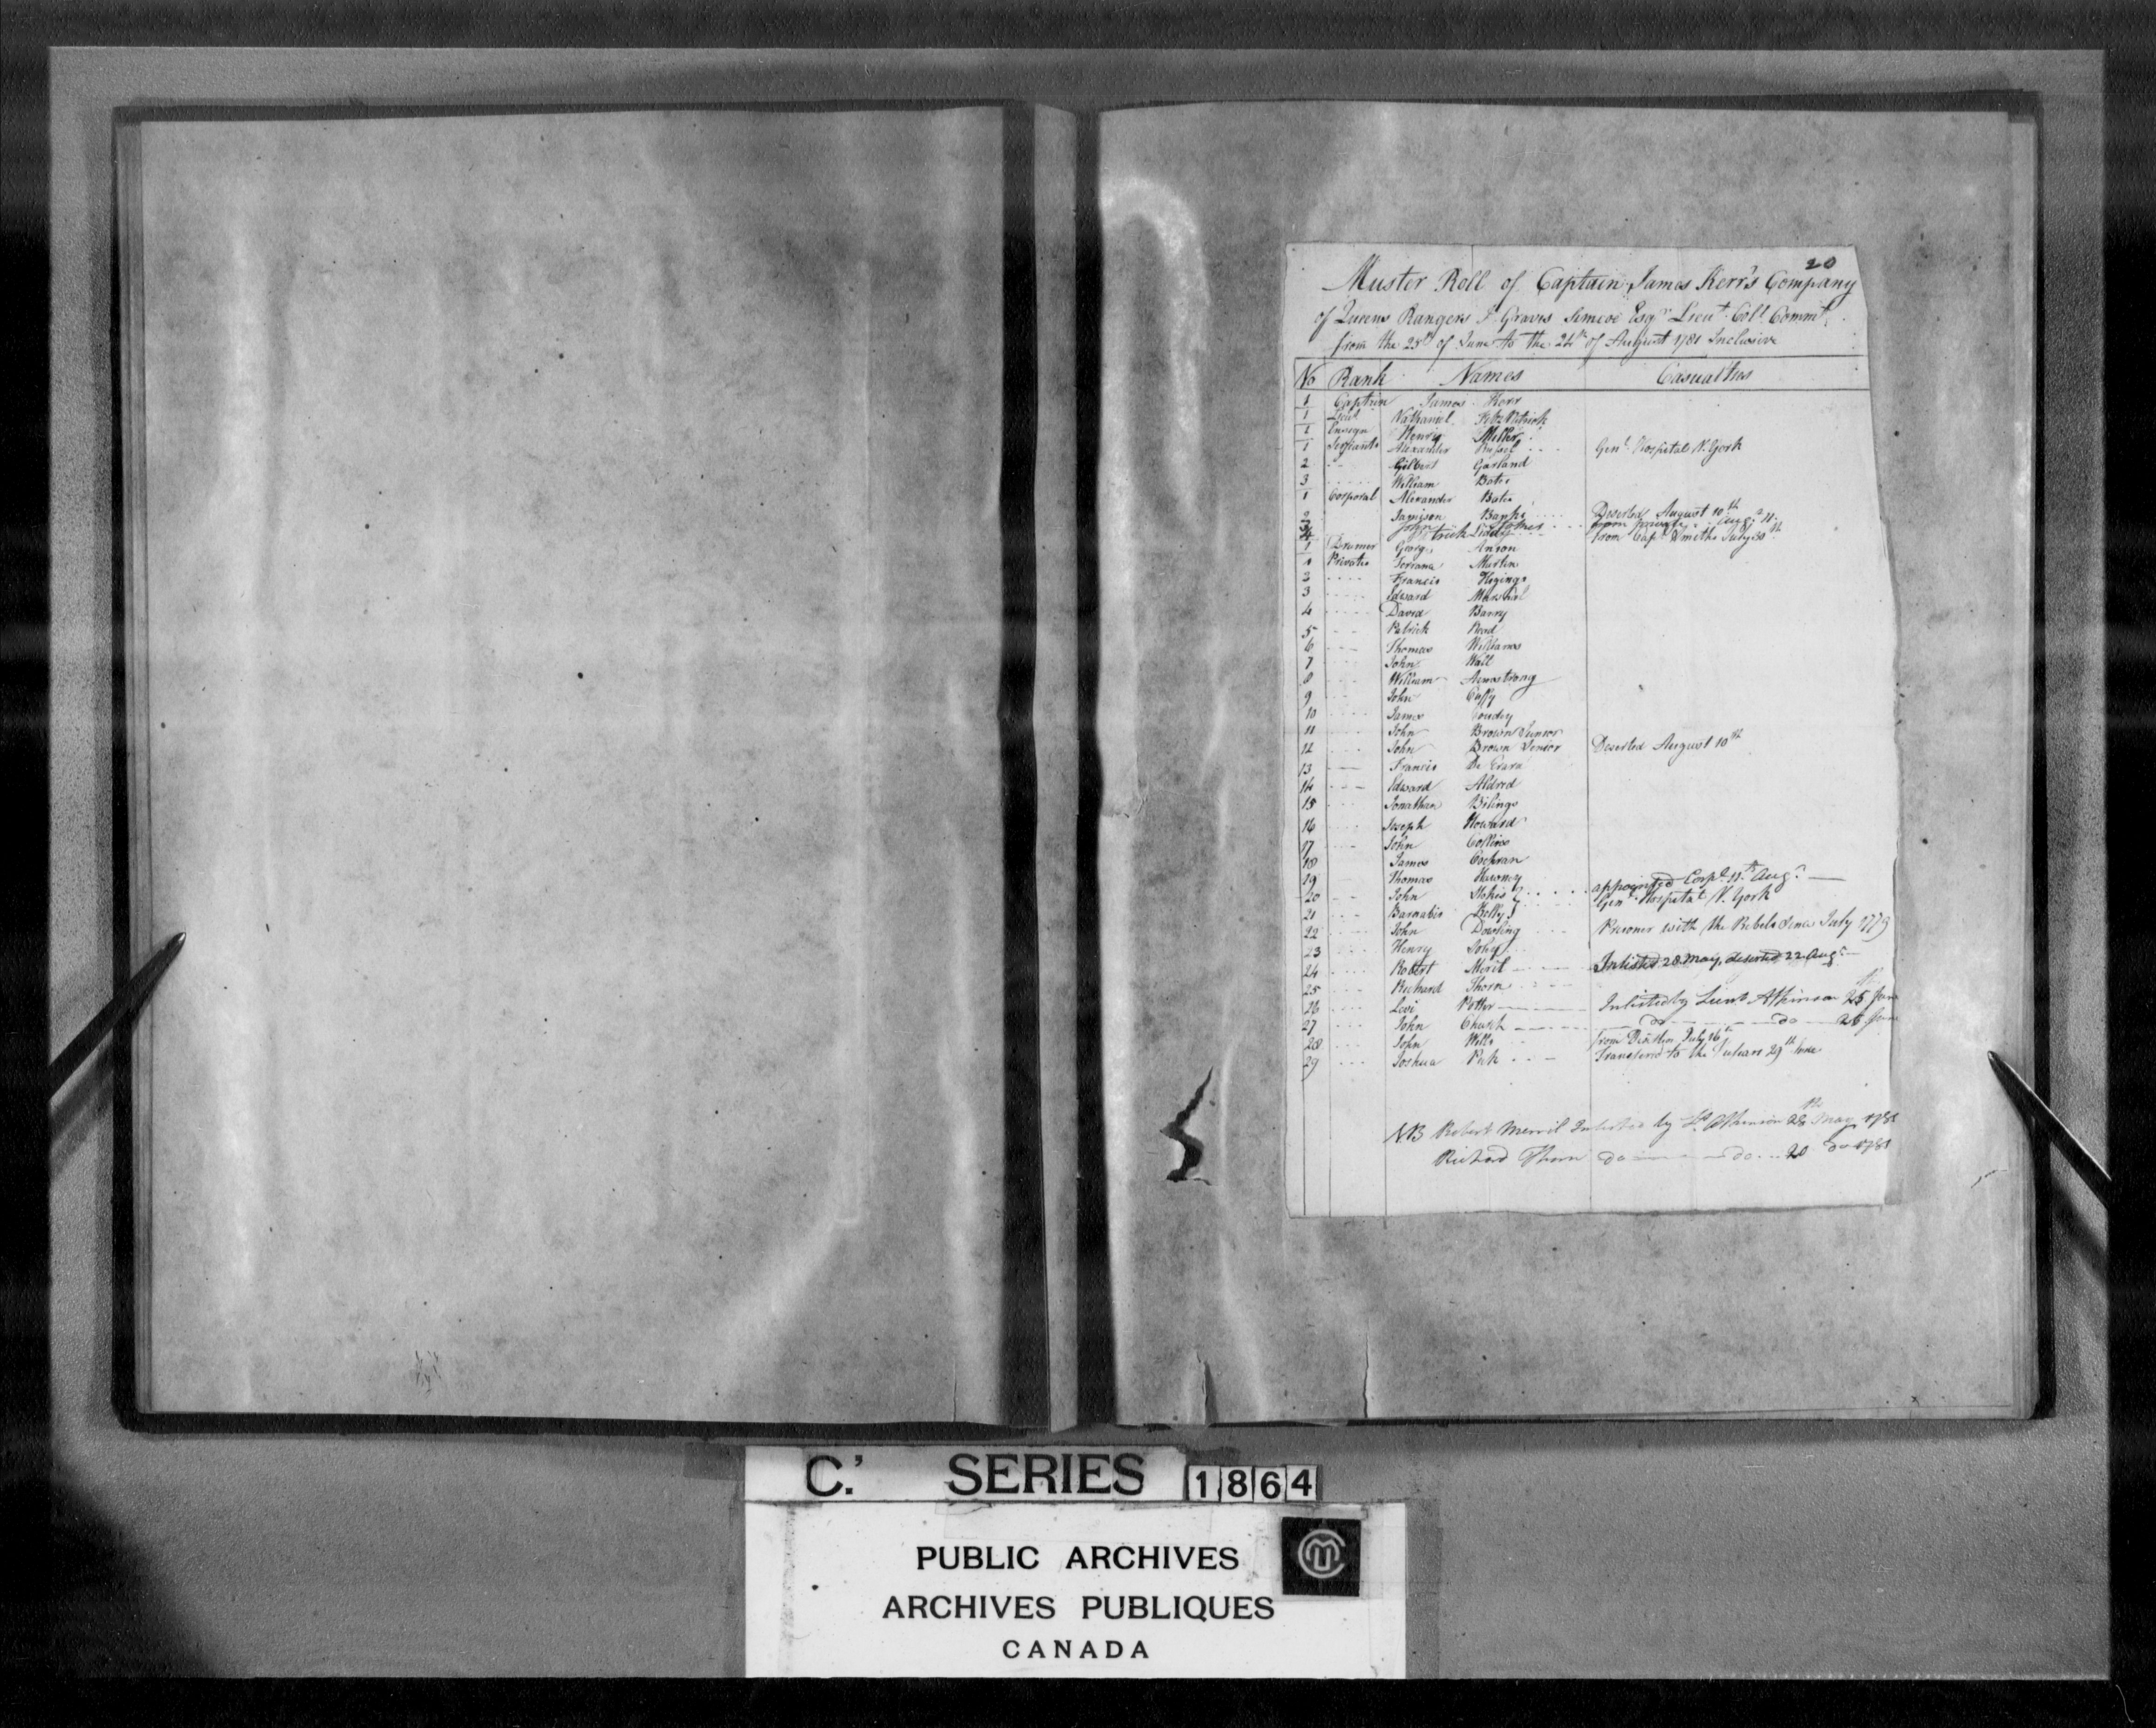 20
Muster Roll of Captain James Kerr's Company
of Queens Rangers J. Graves Simcoe Esqr Lieut Coll Commt
from the 25th of June to the 24th of August 1781 Inclusive
No Rank Names Casualties
1 Captain James Kerr
1 Lieut Nathaniel FitzPatrick
1 Ensign Henry Miller
1 Serjeants Alexander Russel Genl Hospital N. York
2 Gilbert Garland
3 William Batie
1 Corporal Alexander Batie
2 Jamison Banks Deserted August 10th
3 John Stokes from private Augt 11
4 Lively from Capt Smiths July 30th
1 Drumer George Anson
1 Privates Martin
2 Francis Higings
3 Edward Marshal
4 David Barry
5 Patrick Read
6 Thomas Williams
7 John Wall
8 William Armstrong
9 John Cuffy
10 James Coudry
11 John Brown Junior
12 John Brown Senior Deserted August 10th
13 Francis De
14 Edward Aldred
15 Jonathan Bilings
16 Joseph Howard
17 John Collins
18 James Cochran
19 Thomas Haroney
20 John Stokes appointed Corpl 11th Augt
21 Barnabis Kelly Genl Hospital N. York
22 John Dowling Prisoner with the Rebels Since July 1779
23 Henry
24 Robert Meril Inlisted 28 May, deserted 22 Augt
25 Richard Thorn
26 Levi Potter Inlisted by Lieut Atkinson 25th June
27 John Church do do 26 June
28 John Wills from July 16th
29 Joshua Transfered to the 29th June
NB Robert Merril Inlisted by Lt Atkinson 28th May 1781
Richard Thorn do do 20 do 1781
C.' SERIES 1864
PUBLIC ARCHIVES
ARCHIVES PUBLIQUES
CANADA